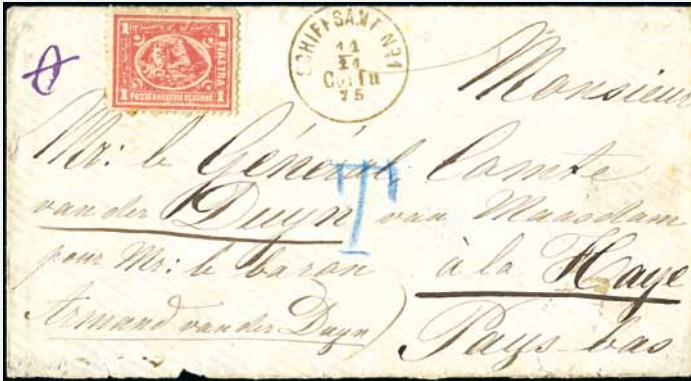 1 PIASTRA 1
POSTE KHEDEUIE EGIZIANE
SCHIFFSAMT No 1
11
21
Corfu
75
Monsieur
Mr: le Général, Comte
van der Duyn van Maasdam
pour Mr: le baron à la Haye
Armand van der Duyn) Pays-bas
T